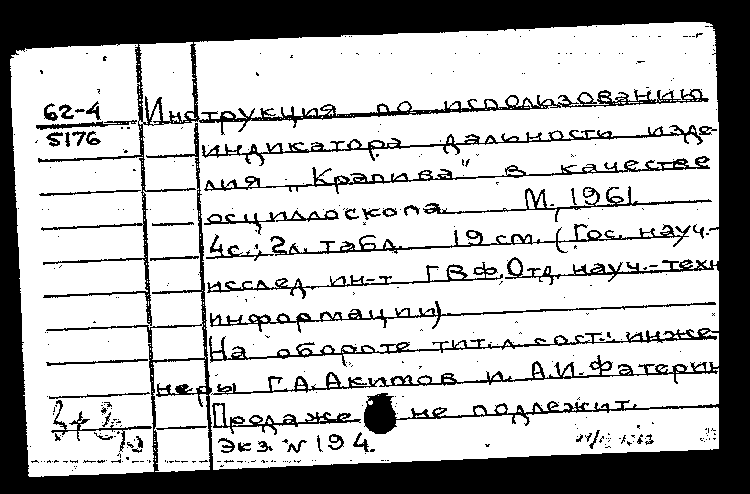 62-4
5176
Инструкция по использованию
индикатора дальности изде-
лия „Крапива" в качестве
осциллоскопа. М., 1961.
4с.; 2л. табл. 19 см. (Гос. науч.-
исслед. ин-т ГВФ. Отд. науч.-техн
информации).
На обороте тит. л. сост.: инже-
неры Г.А. Акимов и А.И. Фатерин
Продаже не подлежит.
Экз. № 194.